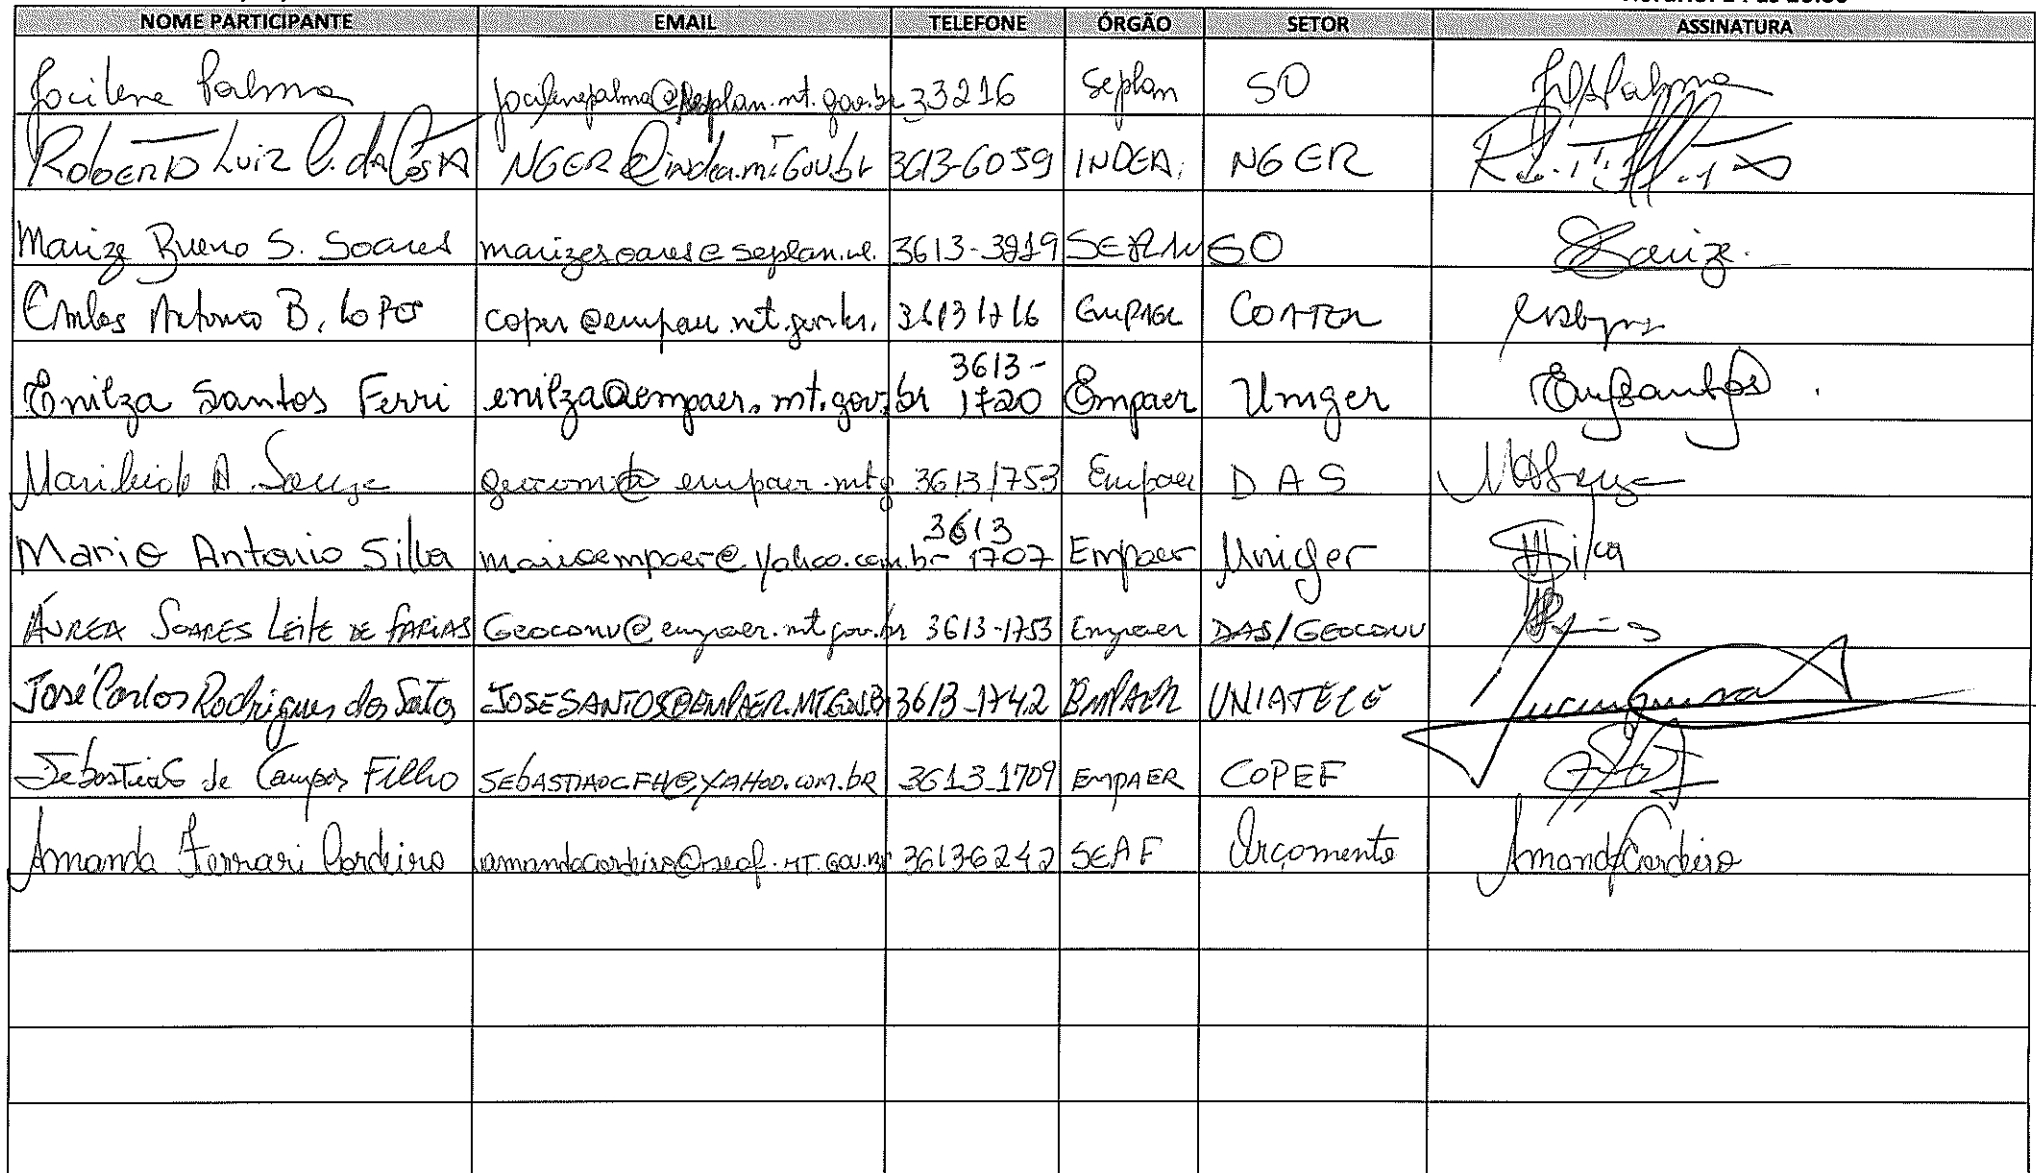 NOME PARTICIPANTE EMAIL TELEFONE ÓRGÃO SETOR ASSINATURA
Jocilene Palma jocilenepalma@seplan.mt.gov.br 33216 Seplan SO
Roberto Luiz C. da Costa NGER@indea.mt.gov.br 3613-6059 INDEA NGER
Marize Bueno S. Soares marizesoares@seplan.mt. 3613-3219 SEPLAN SO Marize
Carlos Antonio B. Lopes coper@empaer.mt.gov.br. 36131716 Empaer COATER
Enilza Santos Ferri enilza@empaer.mt.gov.br 3613-1720 Empaer Uniger
A. Souza @empaer.mtg 3613/1753 Empaer DAS
Mario Antonio Silva marioempaer@yahoo.com.br 3613-1707 Empaer Uniger Silva
ÁUREA SOARES LEITE DE FARIAS Geoconv@empaer.mt.gov.br 3613-1753 Empaer DAS/GEOCONV
José Carlos Rodrigues dos Satos JOSESANTOS@EMPAER.MT.GOV.B 3613-1742 EMPAER
Sebastião de Campos Filho SEBASTIAOCFH@YAHOO.COM.BR 3613-1709 EMPAER COPEF
Amanda Ferrari Cordeiro amandacordeiro@seaf.MT.GOV.BR 36136242 SEAF Orçamento Amanda Cordeiro